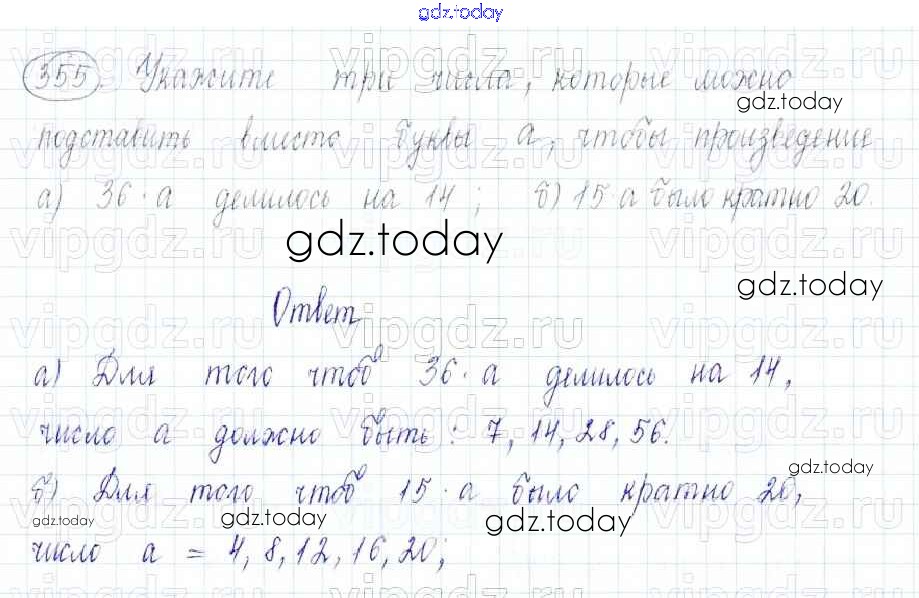 gdz.today
355. Укажите три числа, которые можно
gdz.today
подставить вместо буквы а, чтобы произведение
а) 36·а делилось на 14; б) 15·а было кратно 20.
gdz.today
gdz.today
Ответ
а) Для того чтоб 36·а делилось на 14,
число а должно быть: 7, 14, 28, 56.
gdz.today
б) Для того чтоб 15·а было кратно 20,
gdz.today gdz.today gdz.today
число а = 4, 8, 12, 16, 20;